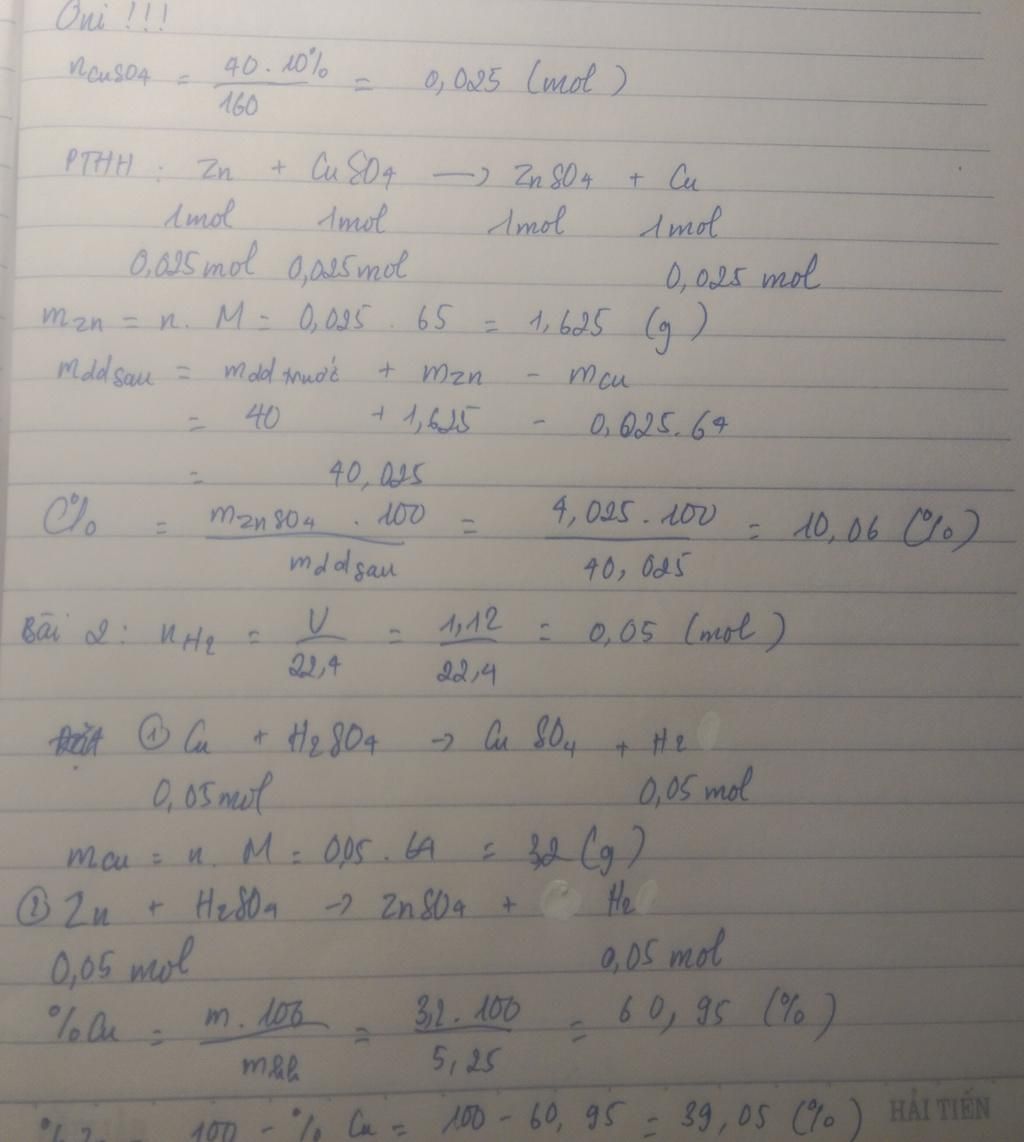 Oni !!!
nCuSO4 = 40 . 10% / 160 = 0,025 (mol)
PTHH : Zn + CuSO4 —> ZnSO4 + Cu
1mol 1mol 1mol 1mol
0,025mol 0,025mol 0,025 mol
mZn = n. M = 0,025 . 65 = 1,625 (g)
mddsau = mddtrước + mZn - mCu
= 40 + 1,625 - 0,025.64
= 40,025
C% = mZnSO4 . 100 / mddsau = 4,025 . 100 / 40,025 = 10,06 (%)
Bài 2 : nH2 = V / 22,4 = 1,12 / 22,4 = 0,05 (mol)
① Cu + H2SO4 -> CuSO4 + H2
0,05mol 0,05 mol
mCu = n. M = 0,05 . 64 = 3,2 (g)
② Zn + H2SO4 -> ZnSO4 + H2
0,05 mol 0,05 mol
%Cu = m . 100 / mhh = 3,2 . 100 / 5,25 = 60,95 (%)
100 - % Cu = 100 - 60,95 = 39,05 (%)
HẢI TIẾN